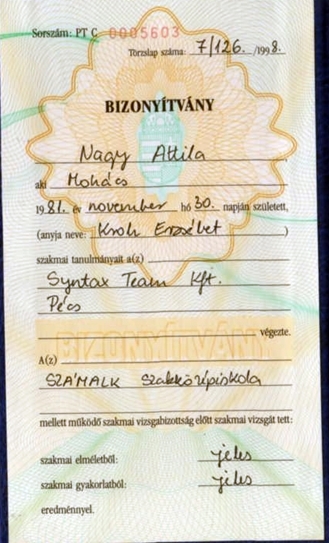 Sorszám: PT C 0005603
Törzslap száma: 7/126. /1998.
BIZONYÍTVÁNY
Nagy Attila
aki Mohács
1981. év november hó 30. napján született,
(anyja neve: Kroh Erzsébet )
szakmai tanulmányait a(z)
Syntax Team Kft.
Pécs
BIZONYÍTVÁNY
végezte.
A(z)
SZÁMALK Szakközépiskola
mellett működő szakmai vizsgabizottság előtt szakmai vizsgát tett:
szakmai elméletből: jeles
szakmai gyakorlatból: jeles
eredménnyel.